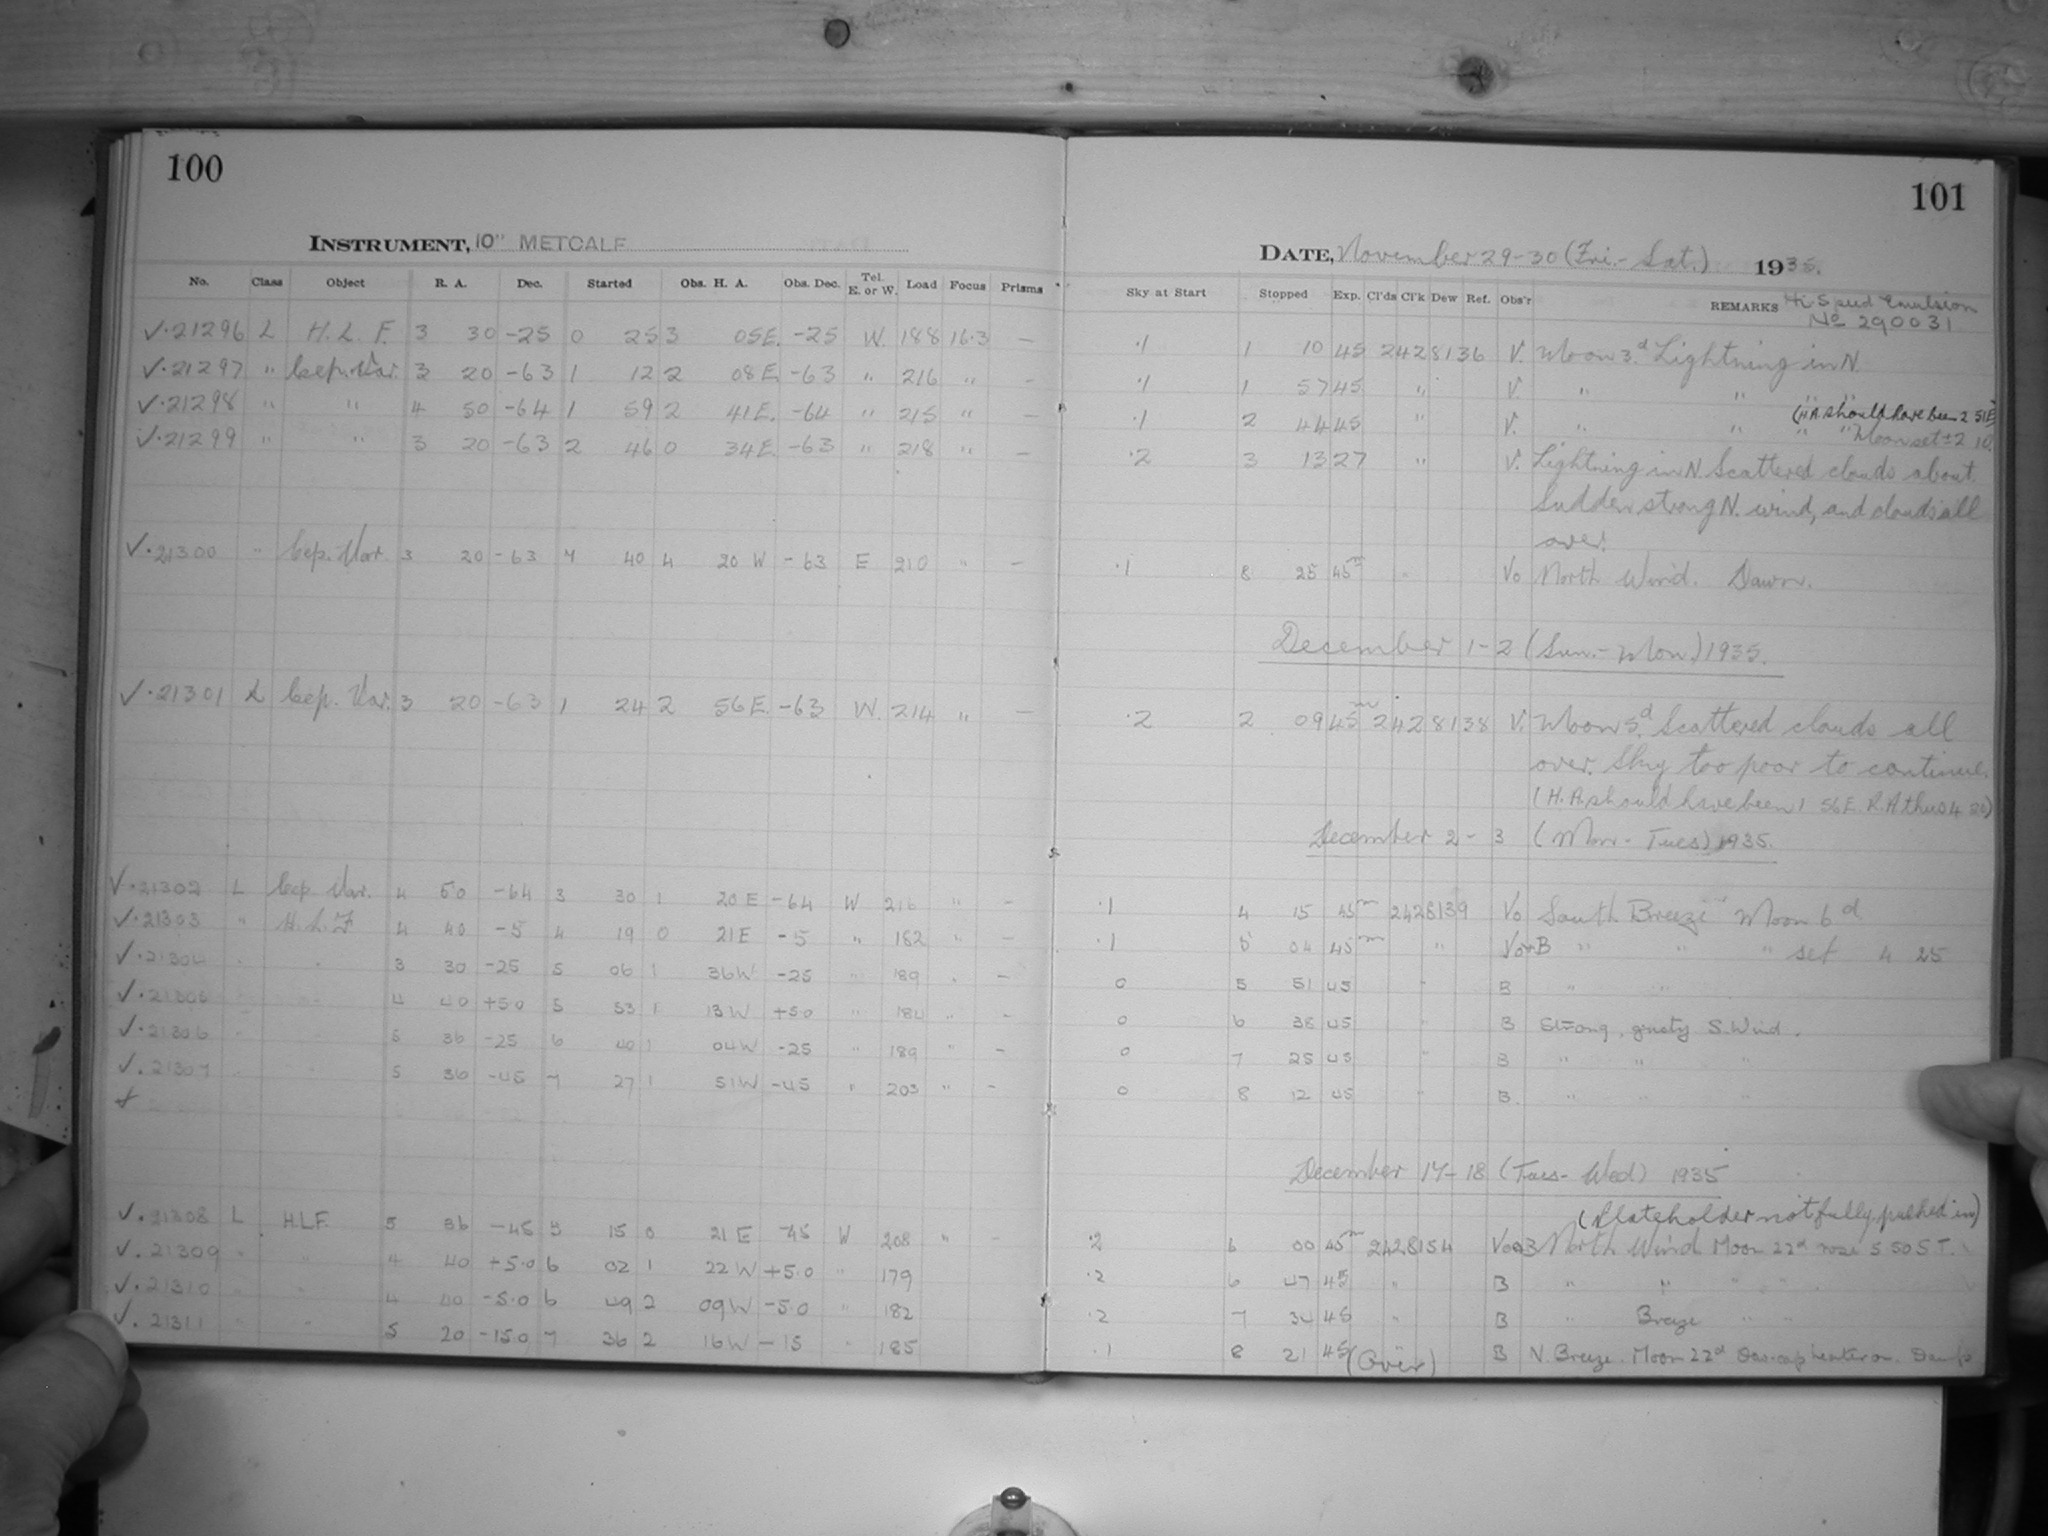 100
INSTRUMENT, 10" METCALF
No. Class Object R. A. Dec. Started Obs. H. A. Obs. Dec. Tel. E. or W. Load Focus Prisms
✓·21296 L H. L. F. 3 30 -25 0 25 3 05E. -25 W. 188 16·3 —
✓·21297 " Cep. Var. 3 20 -63 1 12 2 08E. -63 " 216 " —
✓·21298 " " 4 50 -64 1 59 2 41E. -64 " 215 " —
✓·21299 " " 3 20 -63 2 46 0 34E. -63 " 218 " —
✓·21300 " Cep. Var. 3 20 -63 7 40 4 20 W -63 E 210 " —
✓·21301 L Cep. Var. 3 20 -63 1 24 2 56E. -63 W. 214 " —
✓·21302 L Cep. Var. 4 50 -64 3 30 1 20 E -64 W 216 " —
✓·21303 " H. L. F 4 40 -5 4 19 0 21E -5 " 182 " —
✓·21304 " " 3 30 -25 5 06 1 36W -25 " 189 " —
✓·21305 " " 4 40 +5.0 5 53 1 13W +5.0 " 184 " —
✓·21306 " " 5 36 -25 6 40 1 04W -25 " 189 " —
✓·21307 " " 5 36 -45 7 27 1 51W -45 " 203 " —
✓·21308 L HLF. 5 36 -45 5 15 0 21 E -45 W 208 " —
✓·21309 " " 4 40 +5.0 6 02 1 22W +5.0 " 179
✓·21310 " " 4 40 -5.0 6 49 2 09W -5.0 " 182
✓·21311 " 5 20 -15.0 7 36 2 16W -15 " 185
101
DATE, November 29-30 (Fri.-Sat.) 1935.
Sky at Start Stopped Exp. Cl'ds Cl'k Dew Ref. Obs'r REMARKS Hi-Speed Emulsion
No 290031
·1 1 10 45 2428136 V. Moon 3.d Lightning in N.
·1 1 57 45 " V. " "
(H A. should have been 2 51E)
·1 2 44 45 " V. " " " " Moon set ± 2 10.
·2 3 13 27 " V. Lightning in N. Scattered clouds about.
Sudden strong N. wind, and clouds all
over.
·1 8 25 45m " Vo North Wind. Dawn.
December 1-2 (Sun.-Mon.) 1935.
·2 2 09 45m 2428138 V. Moon 5.d Scattered clouds all
over. Sky too poor to continue.
(H. A. should have been 1 56E. R. A thus 4 20)
December 2-3 (Mon-Tues) 1935.
·1 4 15 45m 2428139 Vo South Breeze Moon 6d
·1 5 04 45m " Vo+B " " " set 4 25
0 5 51 45 " B " "
0 6 38 45 " B Strong, gusty S. Wind.
0 7 25 45 " B " " "
0 8 12 45 " B. " " "
December 17-18 (Tues-Wed) 1935
(Plateholder not fully pushed in)
·2 6 00 45m 2428154 Vo+B North Wind Moon 22d rose 5 50 S T.
·2 6 47 45 " B " " " "
·2 7 34 45 " B " Breeze " "
·1 8 21 45 B N. Breeze. Moon 22d Dew-cap heater on. Damp
(Over)